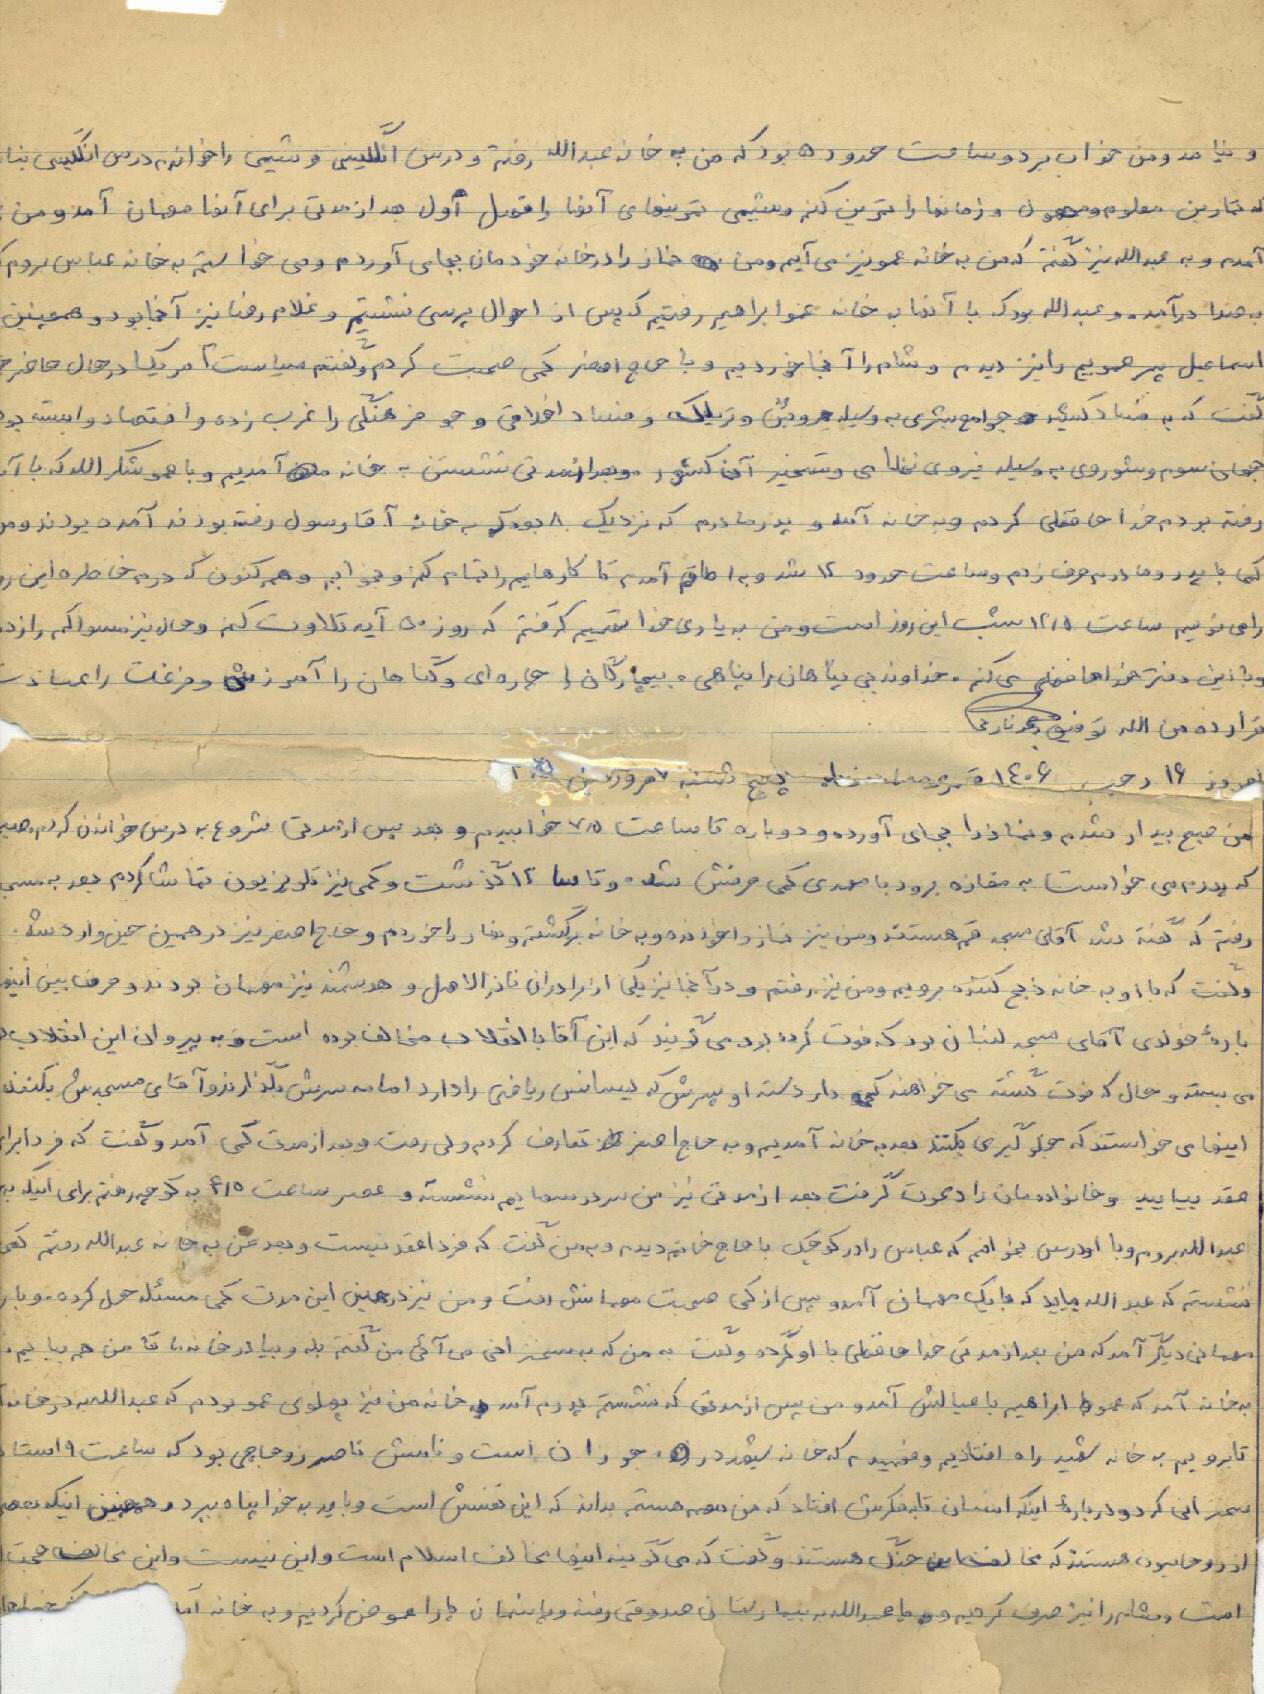 و نیامد و من خواب برد و ساعت حدود ۵ بود که من به خانه عبدالله رفتم و درس انگلیسی و شیمی را خواندم درس انگلیسی
که تمارین معلوم و مجهول و زمانها را تمرین کنم و شیمی تمرینهای آنها را فصل اول بعد از مدتی برای آنها مهمان آمد و من
آمدم و به عبدالله نیز گفتم که من به خانه عمو نیز می آیم و من نماز را در خانه خودمان بجای آوردم و می خواستم به خانه عباس بروم که
به صدا درآمد و عبدالله بود که با آنها به خانه عمو ابراهیم رفتیم که پس از احوال پرسی نشستیم و غلام رضا نیز آنجا بود و همچنین
اسماعیل پسر عمویم را نیز دیدم و شام را آنجا خوردیم و با حاج اصغر کمی صحبت کردم و گفتم سیاست آمریکا در حال حاضر
گفت که به فساد کشیدن جوامع بشری به وسیله هروئین و تریاک و فساد اخلاقی و جو فرهنگی را غرب زده و اقتصاد وابسته
جهان سوم و شوروی به وسیله نیروی نظامی و تسخیر آن کشور و بعد از مدتی نشستن به خانه آمدیم و با عمو شکرالله که با
رفته بردم خداحافظی کردم و به خانه آمد و پدر مادرم که نزدیک ۸ بود که به خانه آقا رسول رفته بودند آمده بودند و من
کمی با پدر و مادرم حرف زدم و ساعت حدود ۱۲ شد و به اطاق آمدم تا کارهایم را تمام کنم و بخوابم و هم کنون که دارم خاطره این روز
را می نویسم ساعت ۱۲/۵ شب این روز است و من به یاری خدا تصمیم گرفتم که روز ۵۰ آیه تلاوت کنم و حال نیز مسواکم را زده
و با این دفتر خداحافظی می کنم. خداوند بی پناهان را پناهی، بیچارگان را چاره ای و گناهان را آمرزش و فرغت را عبادت
قرار ده من الله توفیق
امروز ۱۶ رجب ۱۴۰۶ پنج شنبه ۷ فروردین
من صبح بیدار شدم و نماز را بجای آورده و دوباره تا ساعت ۷/۵ خوابیدم و بعد پس از مدتی شروع به درس خواندن کردم
که پدرم می خواست به مغازه برود با مهدی کمی حرفش شد و تا ۱۲ گذشت و کمی نیز تلویزیون تماشا کردم بعد به
رفتم که گفته شد آقای مسجد قم هستند و من نیز نماز را خوانده و به خانه برگشتم و نهار را خوردم و حاج اصغر نیز در همین حین وارد شد.
و گفت که با او به خانه ذبح کننده برویم و من نیز رفتم و در آنجا نیز یکی از برادران و نیز مهمان بودند و حرف بین
باره خولدی آقای مسجد لنبان بود که فوت کرده بود می گویند که این آقا با انقلاب مخالف بوده است و به پیروان این انقلاب
می بسته و حال که فوت گشته می خواهند دار دسته او پسرش که لیسانس ریاضی را دارد امامه سرش بگذارند و آقای مسجدش بکنند
اینها می خواستند که جلوگیری بکنند بعد به خانه آمدیم و به حاج اصغر تعارف کردم ولی رفت و بعد از مدت کمی آمد و گفت که فردا برای
عقد بیایید و خانواده مان را دعوت گرفت بعد از مدتی نیز من سر درسهایم نشسته و عصر ساعت ۴/۵ به کوچه رفتم برای اینکه به
عبدالله بروم و با او درس بخوانم که عباس را در کوچک با حاج خانم دیدم و به من گفت که فردا عقد نیست و بعد من به خانه عبدالله رفتم کمی
نشستم که عبدالله بیاید که با یک مهمان آمد و پس از کمی صحبت مهمانش رفت و من نیز در همین این مدت کمی مسئله حل کرده. و
مهمانی دیگر آمد که من بعد از مدتی خداحافظی با او کرده و گفت به من که به سخنرانی می آئی من گفتم بله و بیا در خانه ما تا من هم بیایم.
به خانه آمد که عمو ابراهیم با عیالش آمد و من پس از مدتی که نشستم پدرم آمد خانه من نیز پهلوی عمو بودم که عبدالله به در خانه
تا برویم به خانه شهید راه افتادیم و فهمیدم که خانه شهید در جوزدان است و نامش ناصر بود که ساعت ۹ استاد
سخنرانی کرد و درباره اینکه انسان تا به فکرش افتاد که من هستم بداند که این نفسش است و باید به خدا پناه ببرد و همچنین اینکه بعضی
از روحانیون هستند که مخالف جنگ هستند و گفت که می گویند اینها مخالف اسلام است و این نیست و این مخالف
است و شام را نیز صرف کردیم و با عبدالله به بیمارستان صدوقی رفته و پانسمان پا را عوض کردیم و به خانه